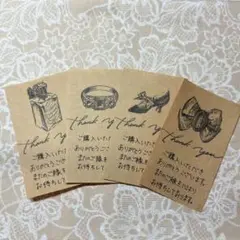 Thank y
ご購入いただ
ありがとうござ
またのご縁を
お待ちして
Thank y
ご購入いただ
ありがとうござ
またのご縁を
お待ちして
Thank y
ご購入いただ
ありがとうござ
またのご縁を
お待ちして
Thank you
ご購入いただき
ありがとうございます。
またのご縁を心より
お待ちしております。